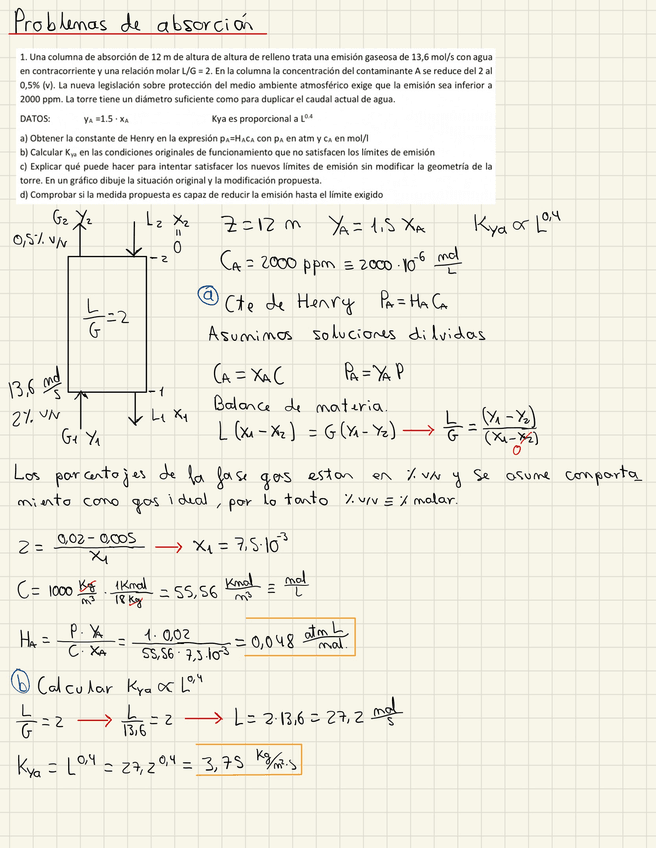 Problemas de absorción
1. Una columna de absorción de 12 m de altura de altura de relleno trata una emisión gaseosa de 13,6 mol/s con agua
en contracorriente y una relación molar L/G = 2. En la columna la concentración del contaminante A se reduce del 2 al
0,5% (v). La nueva legislación sobre protección del medio ambiente atmosférico exige que la emisión sea inferior a
2000 ppm. La torre tiene un diámetro suficiente como para duplicar el caudal actual de agua.
DATOS: yA =1.5 · xA Kya es proporcional a L^0.4
a) Obtener la constante de Henry en la expresión pA=HACA con pA en atm y cA en mol/l
b) Calcular Kya en las condiciones originales de funcionamiento que no satisfacen los límites de emisión
c) Explicar qué puede hacer para intentar satisfacer los nuevos límites de emisión sin modificar la geometría de la
torre. En un gráfico dibuje la situación original y la modificación propuesta.
d) Comprobar si la medida propuesta es capaz de reducir la emisión hasta el límite exigido
G2 Y2 L2 X2
= 0
0,5% V/V
2
L/G = 2
13,6 mol/s
2% V/V
1
L1 X1
G1 Y1
Z = 12 m YA = 1,5 XA Kya ∝ L^0,4
CA = 2000 ppm ≡ 2000·10^-6 mol/L
a Cte de Henry PA = HA CA
Asumimos soluciones diluidas
CA = XA C PA = YA P
Balance de materia.
L (X1 - X2) = G (Y1 - Y2) → L/G = (Y1 - Y2)/(X1 - X2) 0
Los porcentajes de la fase gas estan en % V/V y se asume comporta
miento como gas ideal, por lo tanto % V/V ≡ % molar.
2 = 0,02 - 0,005/X1 → X1 = 7,5·10^-3
C = 1000 Kg/m³ · 1 Kmol/18 Kg = 55,56 Kmol/m³ ≡ mol/L
HA = P · YA/C · XA = 1 · 0,02/55,56 · 7,5·10^-3 = 0,048 atm L/mol.
b Calcular Kya ∝ L^0,4
L/G = 2 → L/13,6 = 2 → L = 2·13,6 = 27,2 mol/s
Kya = L^0,4 = 27,2^0,4 = 3,75 Kg/m³·s